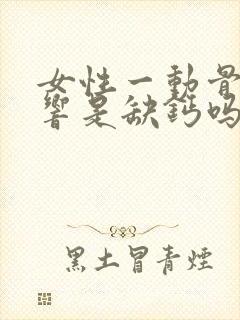 女性一動骨
響是缺鈣嗎
黑土冒青煙